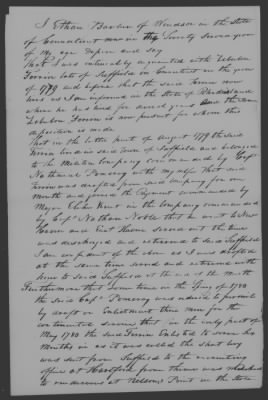 I Ethan Barker of Windsor in the State
of Connecticut now in the Seventy Seven year
of my age Depose and say
That I was intimately acquainted with Zebulon
late of Suffield in Connecticut in the year
of 1779 and before that the said
was as I am informed in the State of Rhode Island
where he has lived for several years And the same
Zebulon is now present for whom this
deposition is made
That in the latter part of August 1779 the said
was in said town of Suffield and belonged
to the Militia Company commanded by Capt
Nathaniel Pomeroy with myself that said
was drafted from said company for one
month and joined the Regiment commanded by
Major Elihu Kent in the Company commanded
by Capt Nathan Noble that he went to New
Haven and West Haven served out the time
was discharged and returned to said Suffield
I am confident of the above as I was drafted
at the same time served and returned with
him to said Suffield at the end of the Month
Furthermore that some time in the Spring of 1780
the said Capt Pomeroy was ordered to furnish
by draft or Enlistment three men for the
continental service that in the early part of
May 1780 the said Enlisted to serve six
Months or as it was called the short levy
was sent from Suffield to the recruiting
officer at Hartford from thence was marched
to our Nelsons Point in the State